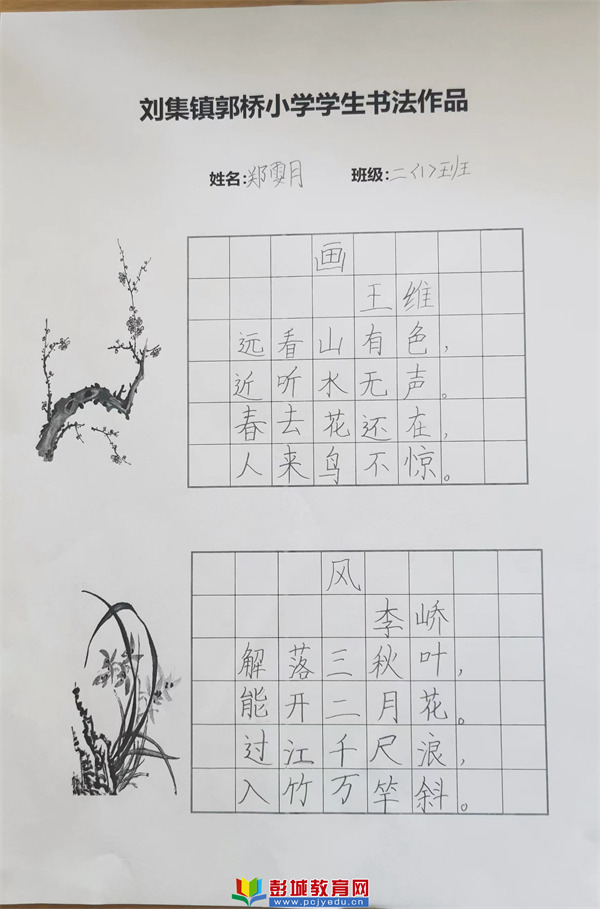 刘集镇郭桥小学学生书法作品
姓名:郑雯月 班级:二〈1〉班
画
王维
远看山有色,
近听水无声。
春去花还在,
人来鸟不惊。
风
李峤
解落三秋叶,
能开二月花。
过江千尺浪,
入竹万竿斜。
彭城教育网
www.pcjyedu.cn